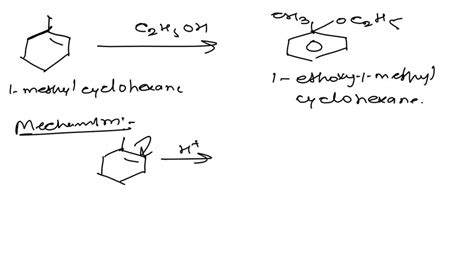 C2H5OH
CH3 OC2H5
1-methyl cyclohexane
1-ethoxy-1-methyl
cyclohexane.
Mechanism:-
H+